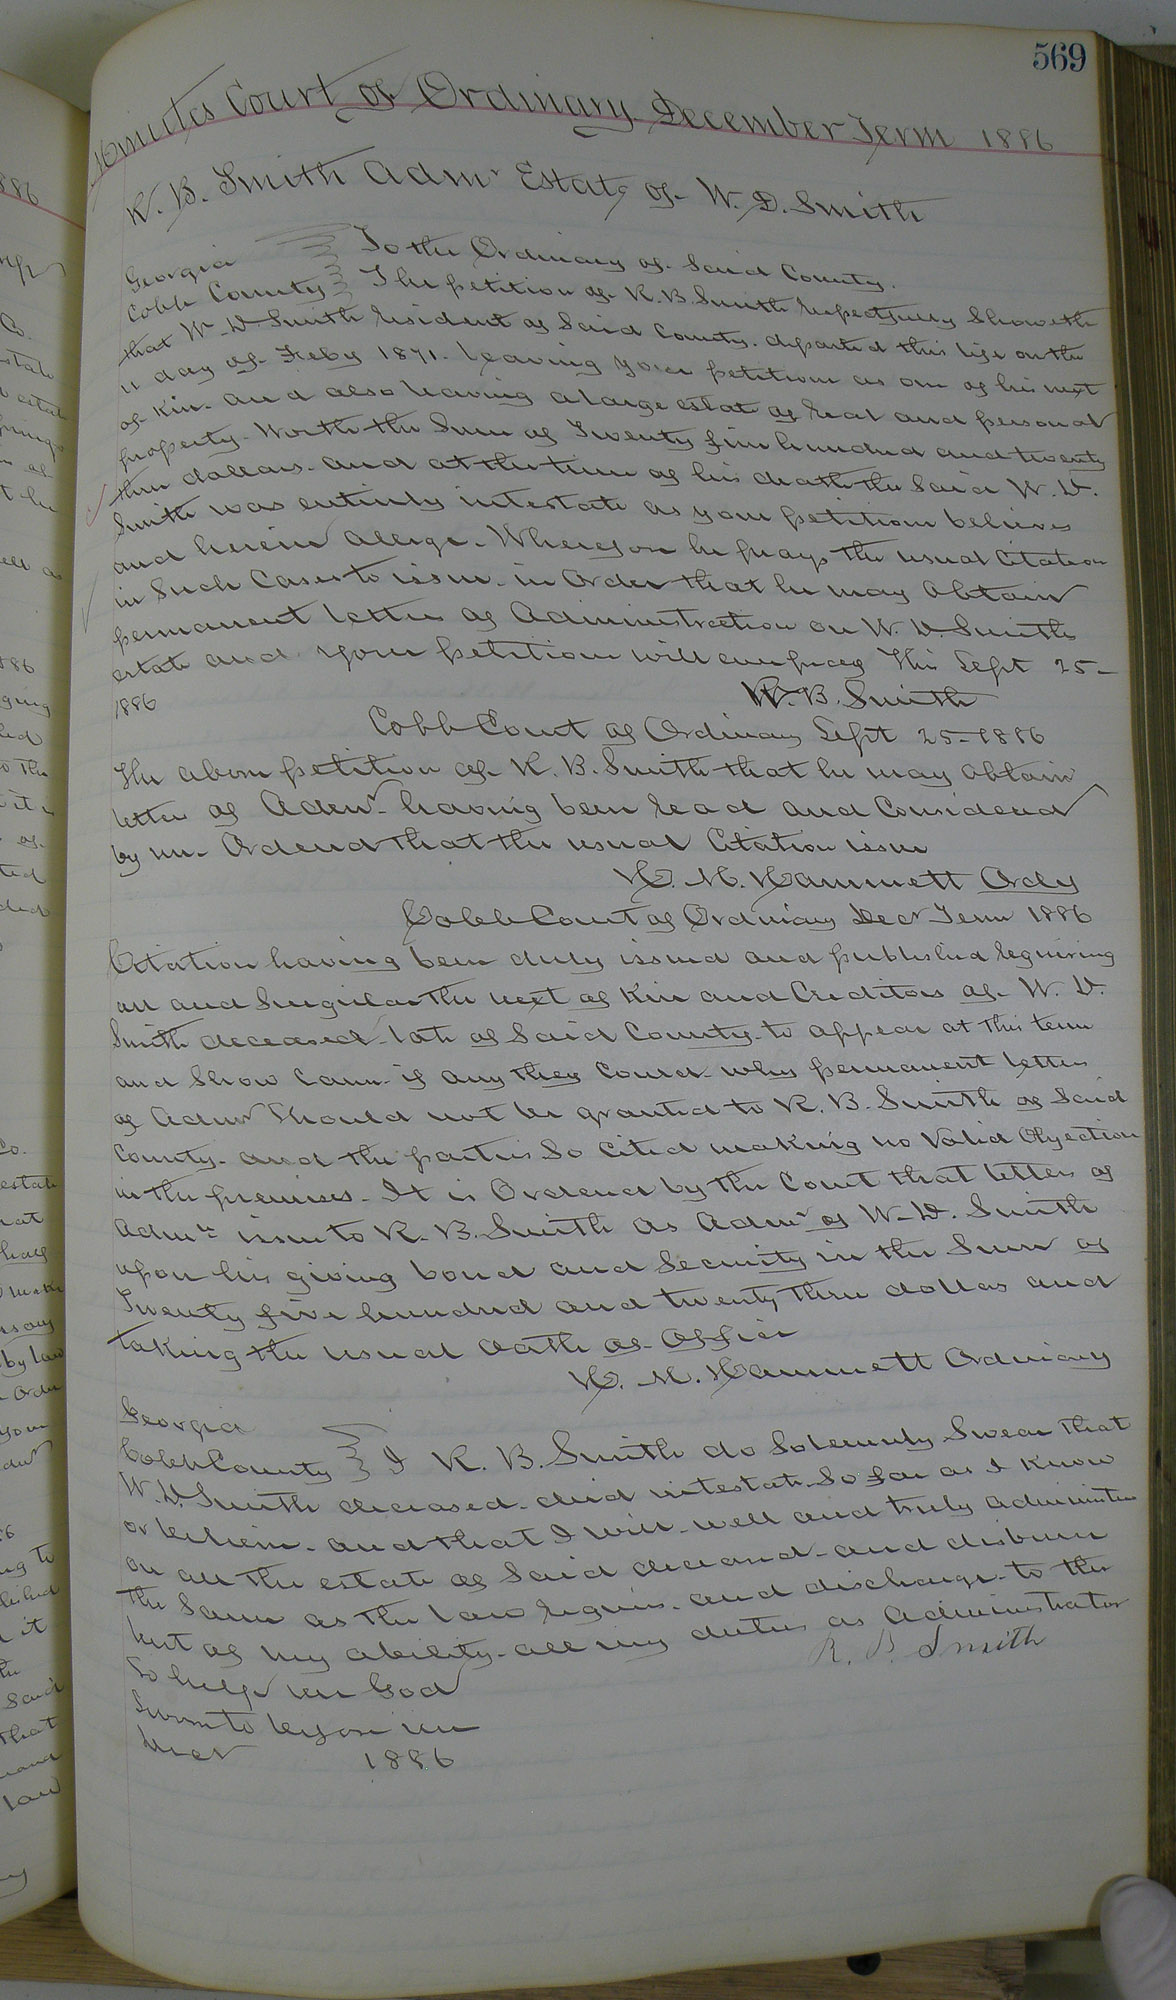 569
Minutes Court of Ordinary December Term 1886
R. B. Smith Admr Estate of W. D. Smith
Georgia To the Ordinary of Said County.
Cobb County The petition of R. B. Smith Respectfully Showeth
that W. D. Smith Resident of Said County. departed this life on the
11 day of Feby 1871. leaving your petitioner as one of his next
of Kin. and also leaving a large estate of Real and personal
property. Worth the Sum of Twenty five hundred and twenty
three dollars. and at the time of his death the Said W. D.
Smith was entirely intestate as your petitioner believes
and herein alleges. Wherefore he prays the usual Citation
in Such Cases to issue. in Order that he may Obtain
permanent letters of Administration on W. D. Smith
estate and your petitioner will ever pray This Sept 25-
1886 R. B. Smith
Cobb Court of Ordinary Sept 25-1886
The above petition of R. B. Smith that he may Obtain
letters of Admr. having been read and Considered
by me. Ordered that the usual Citation issue
H. M. Hammett Ordy
Cobb Court of Ordinary Decr Term 1886
Citation having been duly issued and published Requiring
all and Singular the next of Kin and Creditors of W. D.
Smith deceased late of Said County. to appear at this term
and Show Cause if any they Could why permanent letters
of Admr Should not be granted to R. B. Smith of Said
County. and the parties So Cited making no Valid Objection
in the premises. It is Ordered by the Court that letters of
Admn issue to R. B. Smith as Admr of W. D. Smith
upon his giving bond and Security in the Sum of
Twenty five hundred and twenty three dollars and
taking the usual Oath of Office
H. M. Hammett Ordinary
Georgia
Cobb County I R. B. Smith do Solemnly Swear that
W. D. Smith deceased. died intestate So far as I Know
or believe. and that I will well and truly Administer
on all the estate of Said deceased. and disburse
the Same as the law requires. and discharge to the
best of my ability. all my duties as Administrator
So help me God R. B. Smith
Sworn to before me
Decr 1886